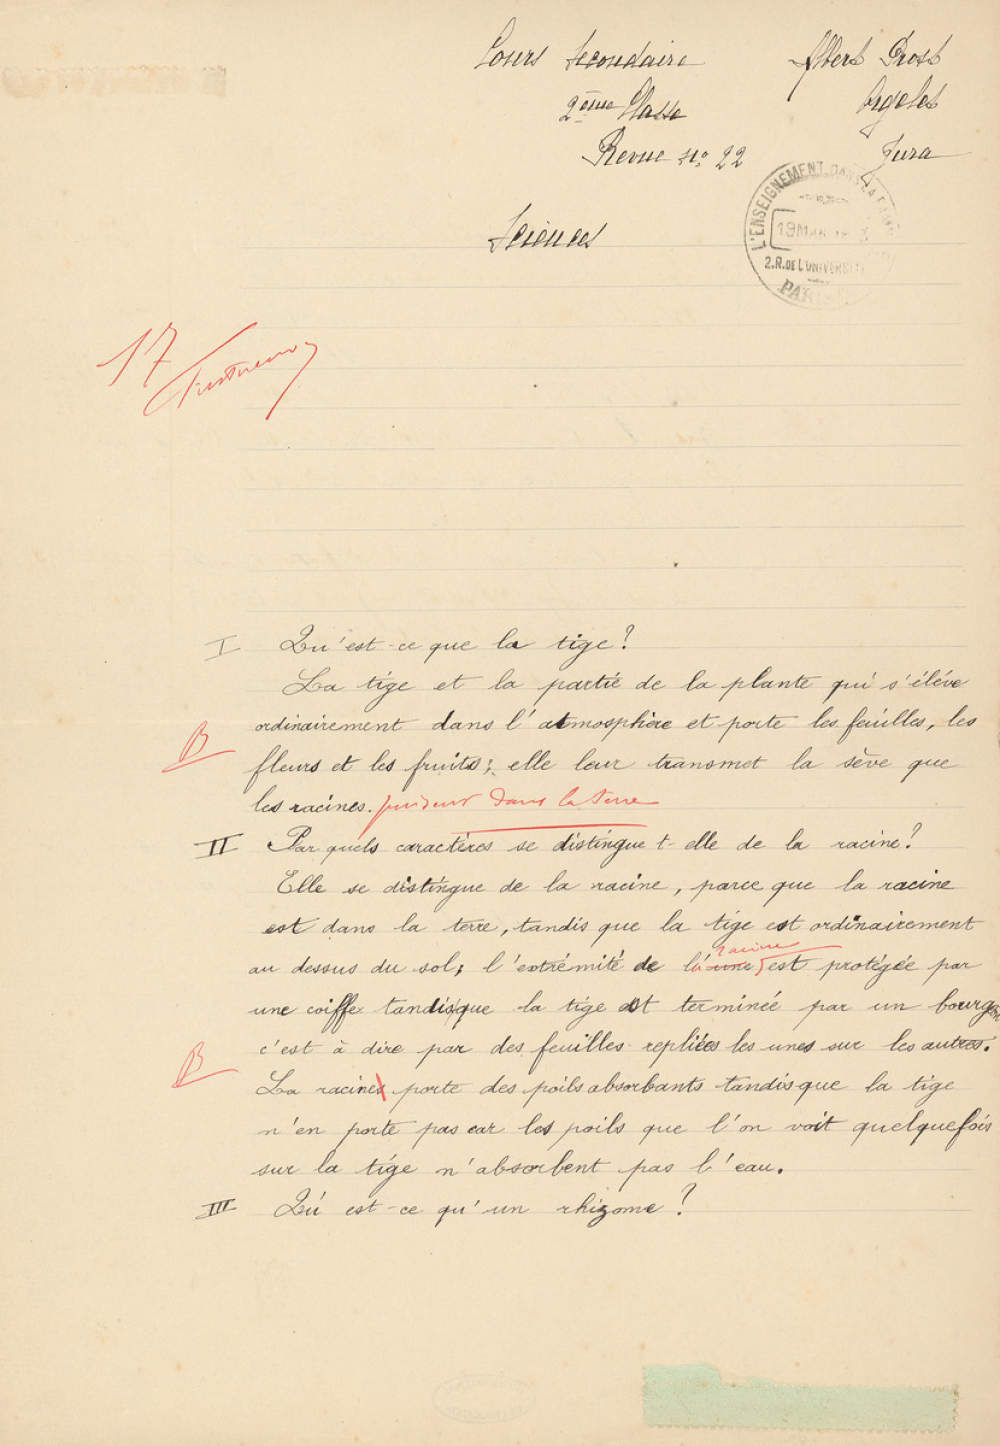 Cours Secondaire
Albert Prost
2ème Classe
Orgelet
Revue No 22
Jura
L'ENSEIGNEMENT DANS LA FAMILLE
19 MAR
2.R. DE L'UNIVERSITÉ
PARIS
Sciences
17
I Qu'est-ce que la tige?
La tige et la partie de la plante qui s'éléve
ordinairement dans l'atmosphère et porte les feuilles, les
B
fleurs et les fruits; elle leur transmet la sève que
les racines. puisent dans la terre
II Par quels caractères se distingue t-elle de la racine?
Elle se distingue de la racine, parce que la racine
est dans la terre, tandis que la tige est ordinairement
racine
au dessus du sol; l'extrémité de l'une est protégée par
une coiffe tandis que la tige est terminée par un bourgeon
c'est à dire par des feuilles repliées les unes sur les autres.
B
La racines porte des poils absorbants tandis que la tige
n'en porte pas car les poils que l'on voit quelquefois
sur la tige n'absorbent pas l'eau.
III Qu'est-ce qu'un rhizome?